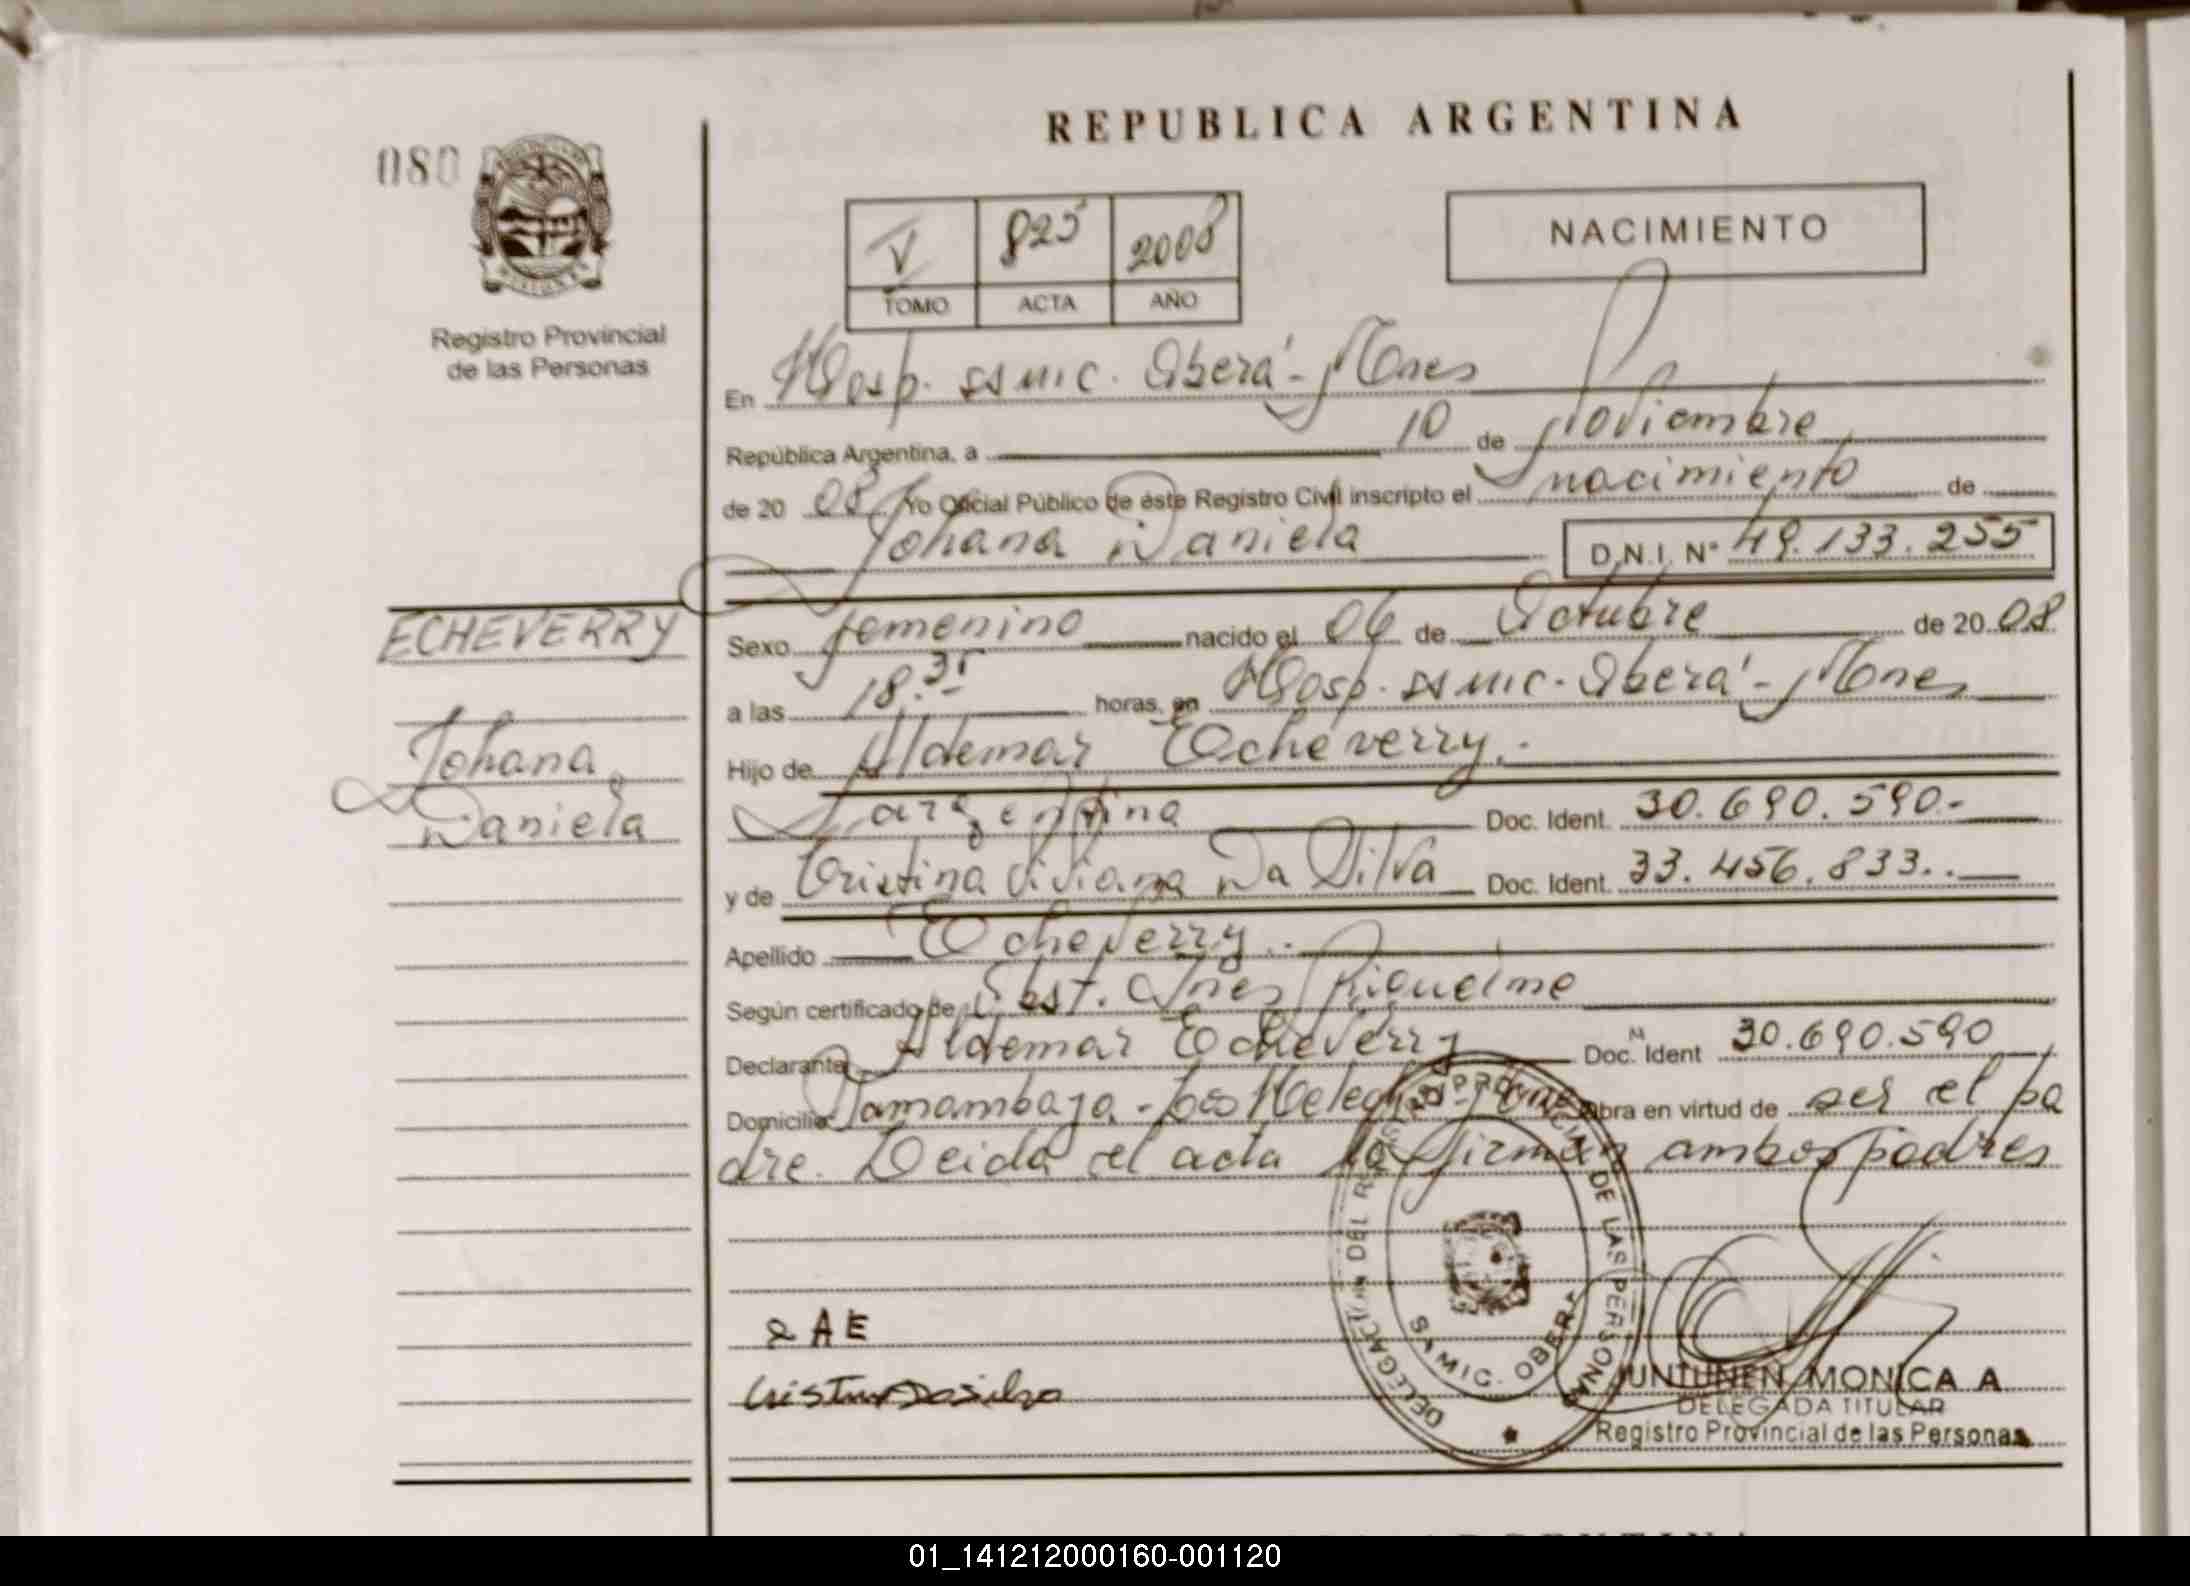 REPUBLICA ARGENTINA
080
V 825 2008
TOMO ACTA AÑO
NACIMIENTO
Registro Provincial
de las Personas
En Hosp. SAMIC. Oberá - Mnes
República Argentina, a 10 de Noviembre
de 20 08 Yo Oficial Público de éste Registro Civil inscripto el nacimiento de
Johana Daniela D.N.I. N° 49.133.255
ECHEVERRY
Johana
Daniela
Sexo femenino nacido el 06 de Octubre de 20 08
a las 18.35 horas, en Hosp. SAMIC - Oberá - Mnes
Hijo de Aldemar Echeverry.-
argentina Doc. Ident. 30.690.590.-
y de Cristina Viviana Da Silva Doc. Ident. 33.456.833..
Apellido Echeverry..
Según certificado de Obst. Ines Riquelme
Declarante Aldemar Echeverry Doc. Ident 30.690.590
Domicilio obra en virtud de ser el pa
dre. Leida el acta la firman ambos padres
DELEGACION DEL REGISTRO PROVINCIAL DE LAS PERSONAS
SAMIC. OBERA
AE
Cristina Da Silva
JUNTUNEN MONICA A
DELEGADA TITULAR
Registro Provincial de las Personas
REPUBLICA ARGENTINA
01_141212000160-001120